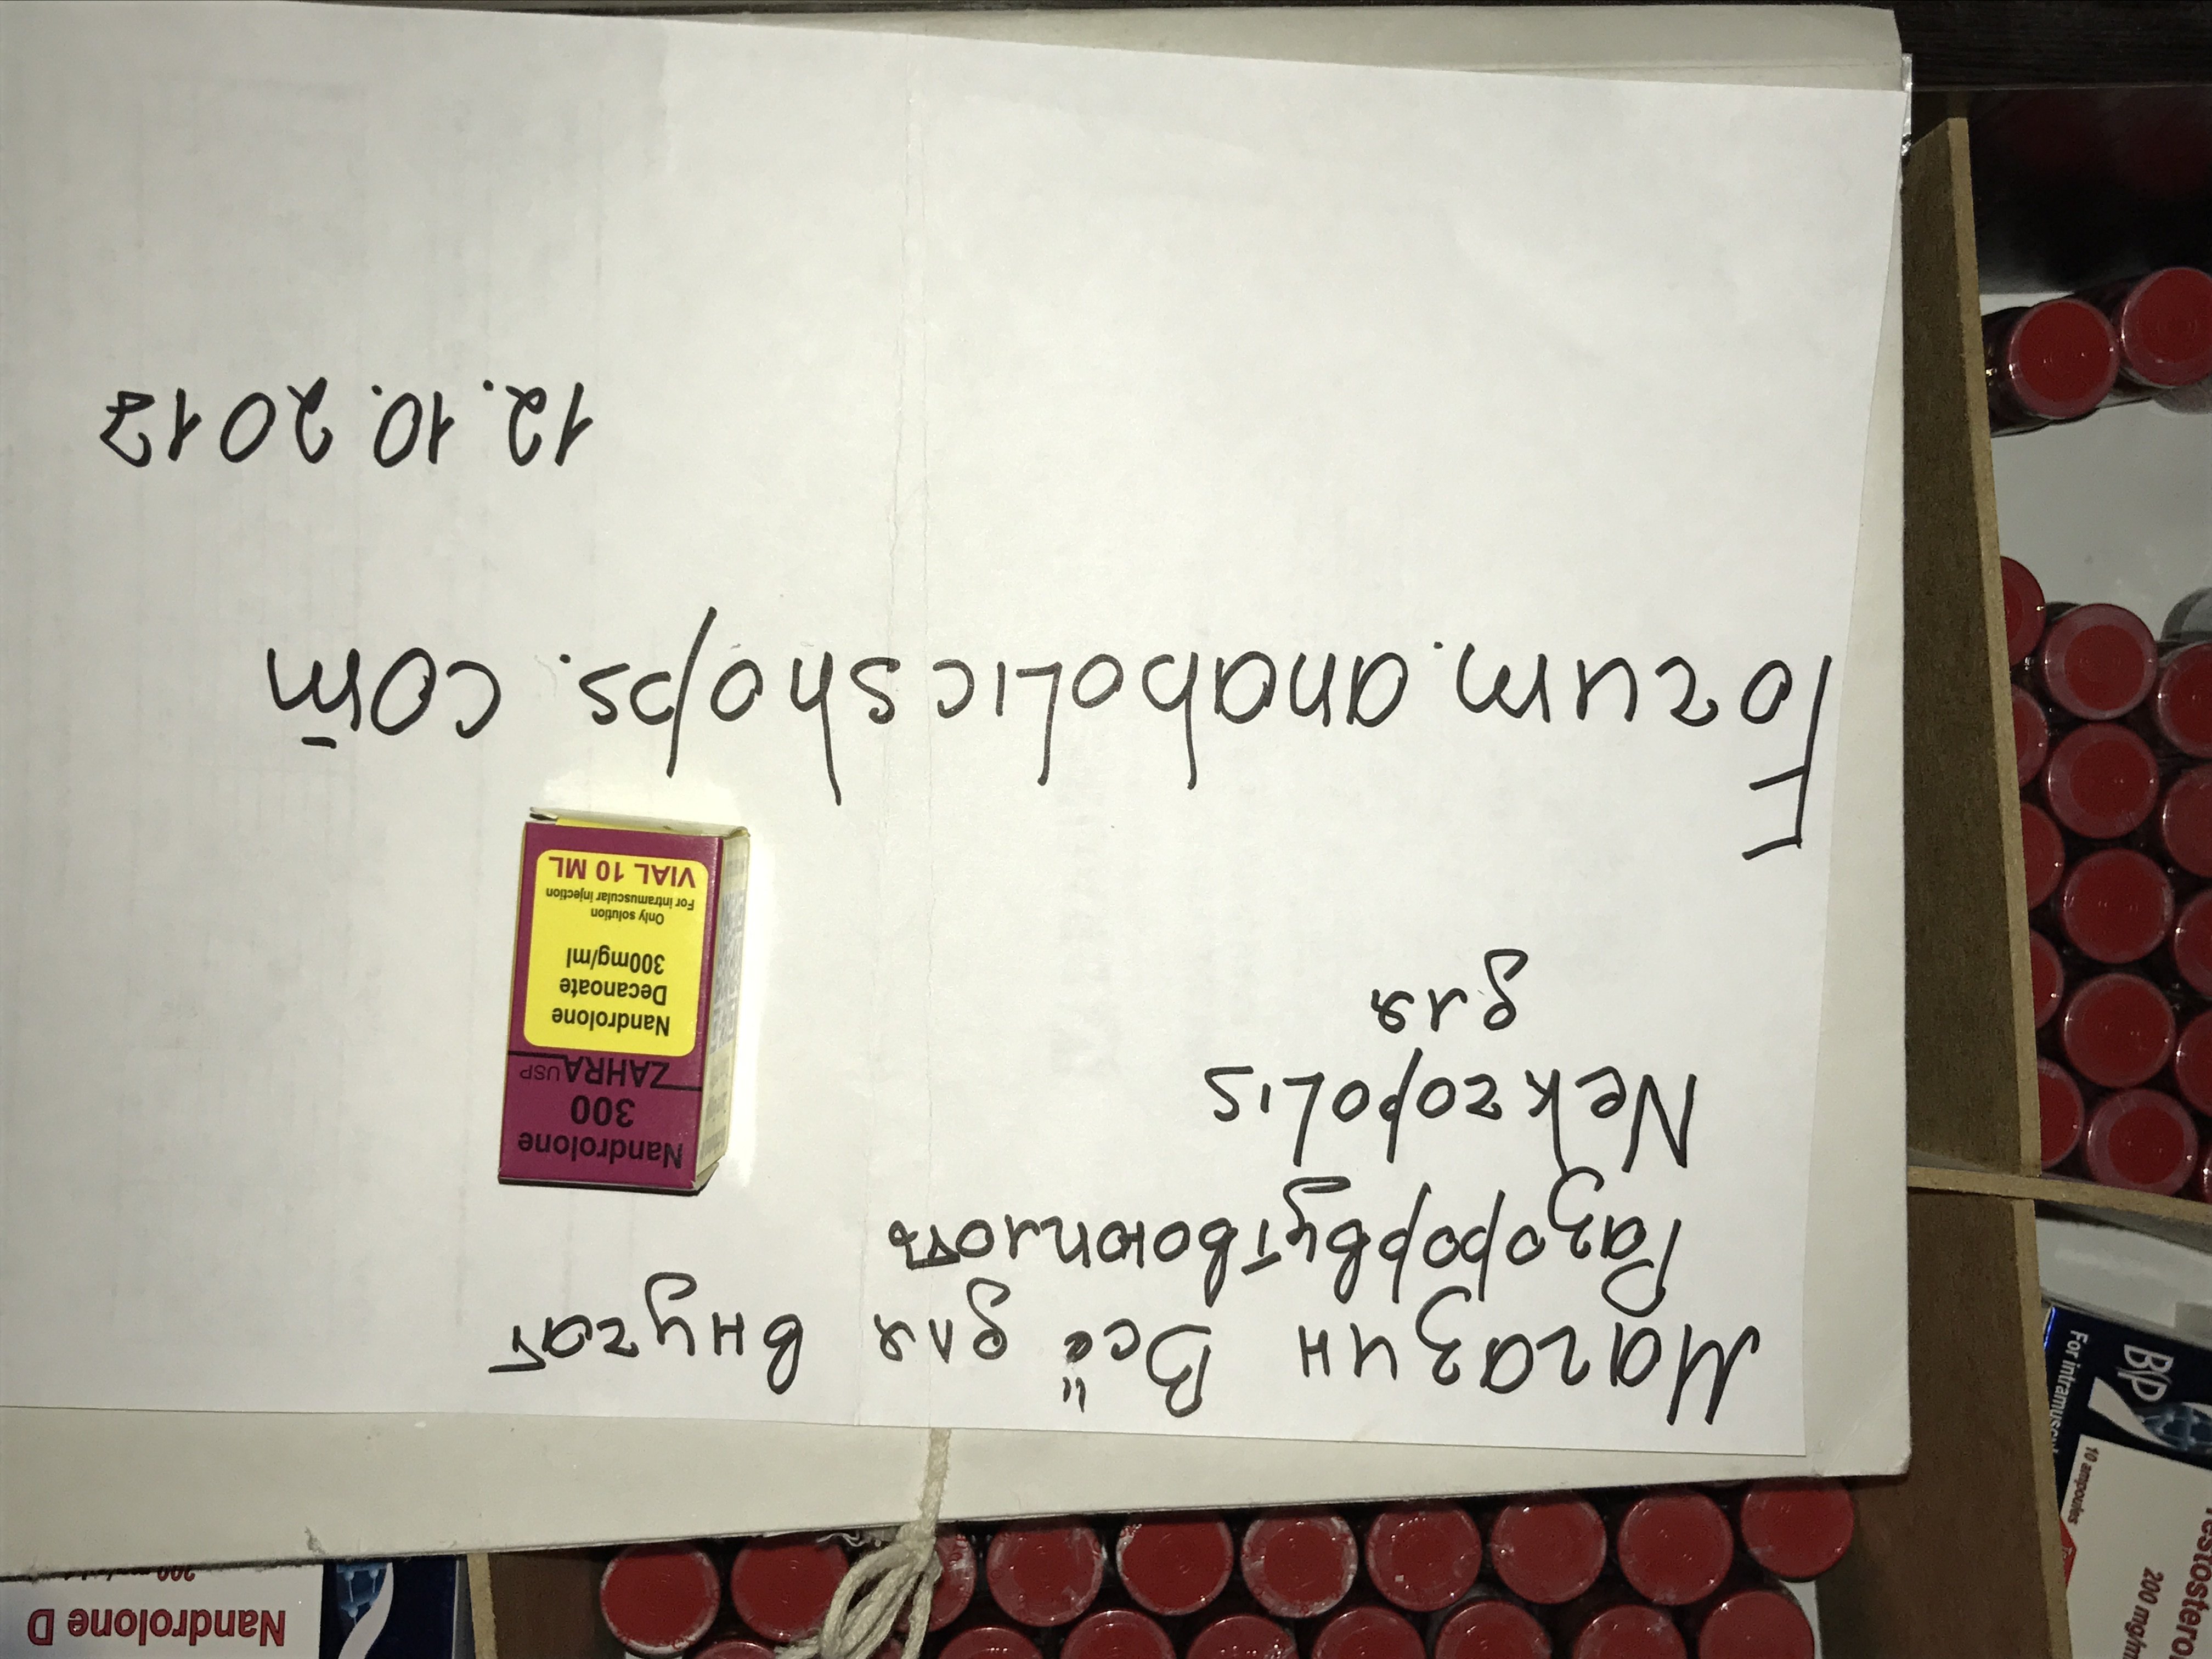 Магазин Всё для внучат
Разорвутвоюплоть
Nekropolis
для
Forum.anabolicshops.com
12.10.2017
Nandrolone
300
ZAHRA USP
Nandrolone
Decanoate
300mg/ml
Only solution
For intramuscular injection
VIAL 10 ML
Nandrolone D
BP
For intramuscul
10 ampoules
Testostero
200 mg/m